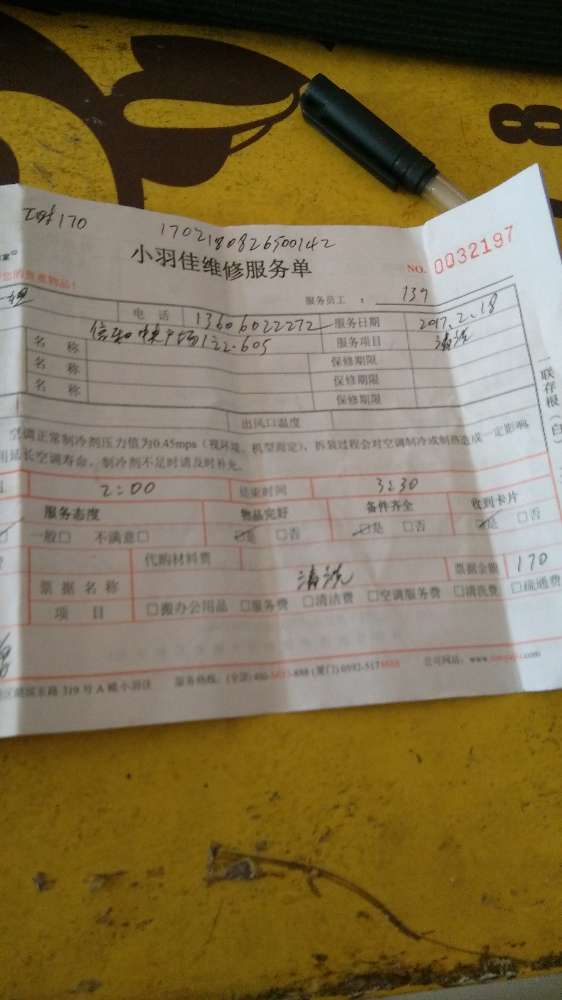 170218082650142
小羽佳维修服务单
NO. 0032197
服务员工： 139
电 话 13606022272 服务日期 2017.2.18
名 称 122-605 服务项目 清洗
名 称 保修期限
名 称 保修期限
保修期限
出风口温度
空调正常制冷剂压力值为0.45mps（视环境、机型而定），拆装过程会对空调制冷或制热造成一定影响
用延长空调寿命，制冷剂不足时请及时补充。
2:00 结束时间 3:30
服务态度 物品完好 备件齐全 收到卡片
一般□ 不满意□ □是 □否 □是 □否 □是 □否
代购材料费
票 据 名 称 清洗 票据金额 170
项 目 □搬办公用品 □服务费 □清洁费 □空调服务费 □清洗费 □疏通费
319号A幢小羽佳 服务热线： 公司网站：
8